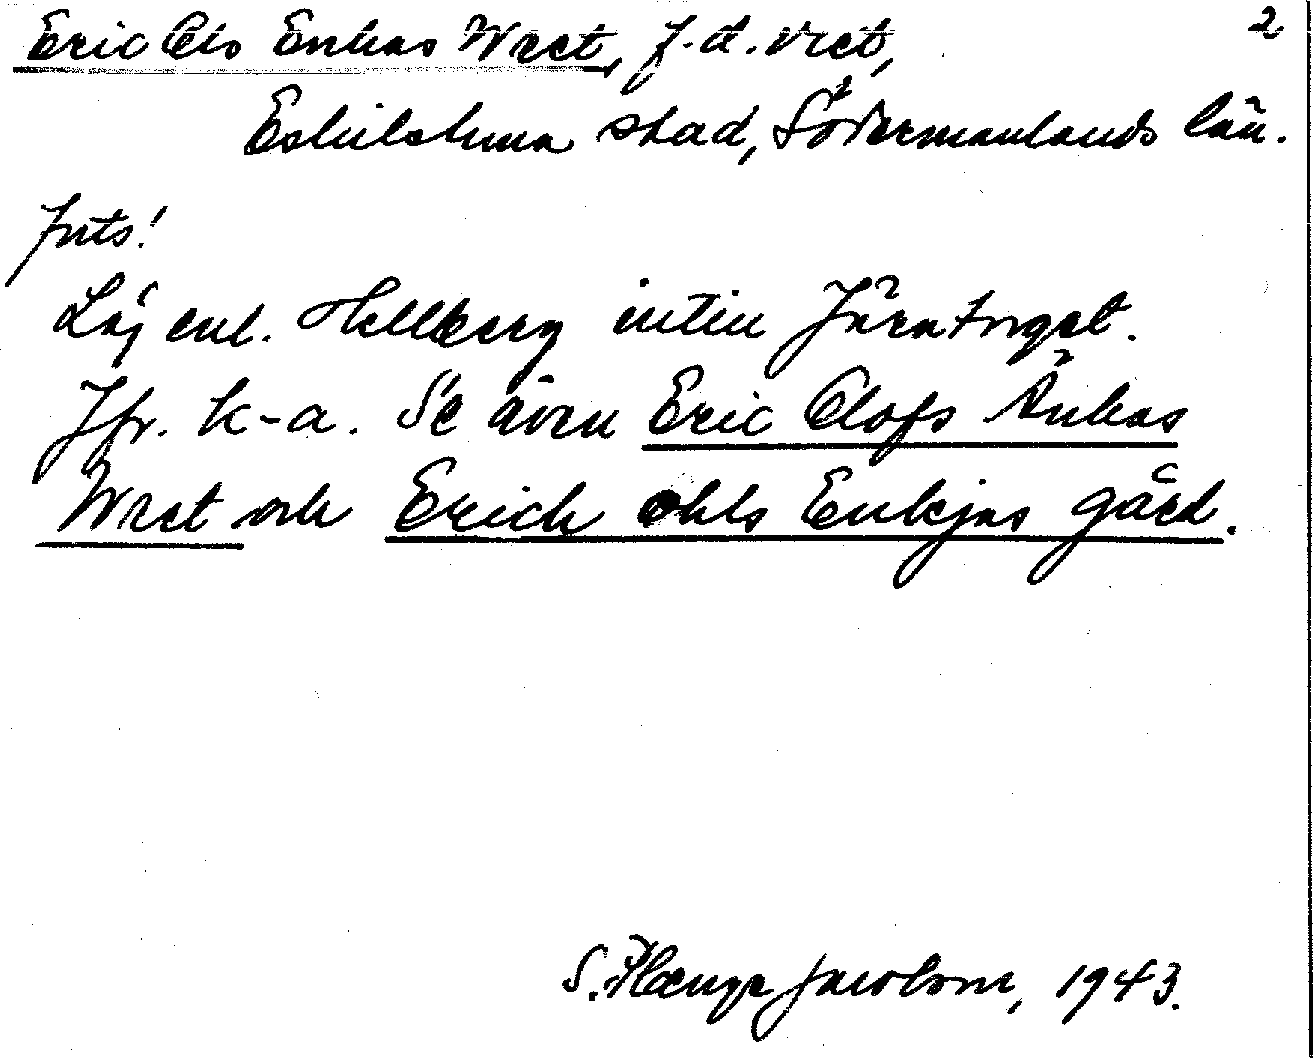 2
Eric Ols Enkas Wret, f.d. vret,
Eskilstuna stad, Södermanlands län.
Forts!
Låg enl. Hellberg intill Järntorget.
Jfr. k-a. Se även Eric Olofs Änkas
Wret och Erich ohls Enkjas gård.
S. Jacobson, 1943.